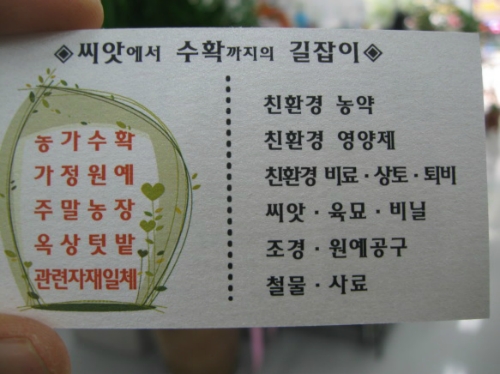 ◈씨앗에서 수확까지의 길잡이◈
농가수확
가정원예
주말농장
옥상텃밭
관련자재일체
친환경 농약
친환경 영양제
친환경 비료·상토·퇴비
씨앗·육묘·비닐
조경·원예공구
철물·사료